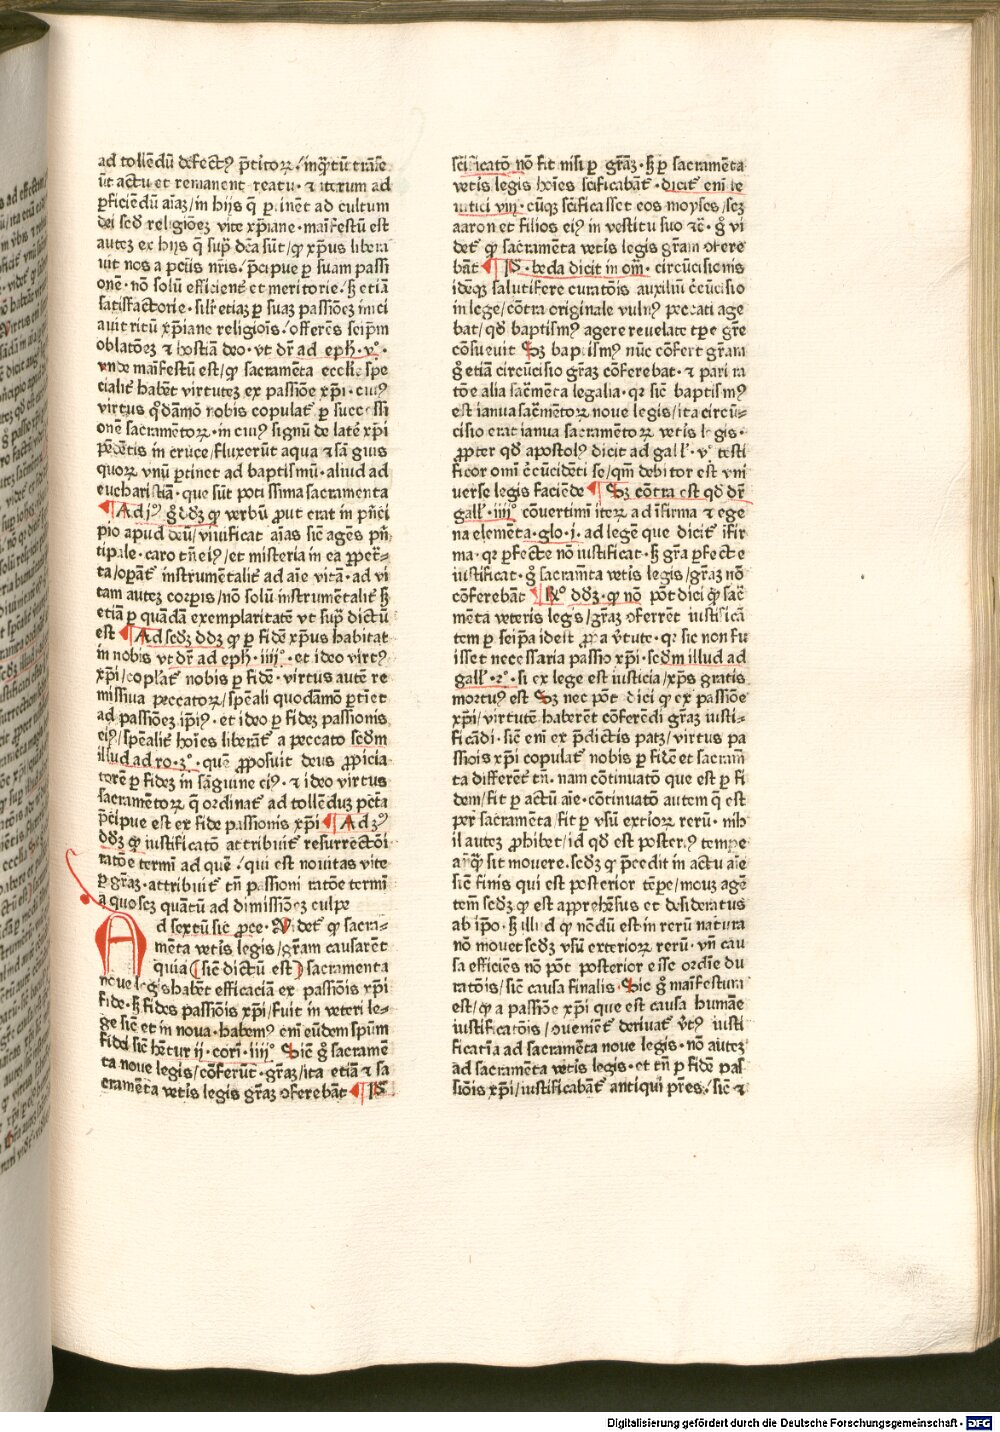 ad tollēdū defectꝰ p̄titoꝝ / inq̄tū trāseūt
ūt actu et remanent reatu · ⁊ iterum ad
ꝑficiēdū aīaꝫ / in hijs q̄ ꝑtinēt ad cultum
dei scd̄ꝫ religiōeꝫ vite xp̄iane · maīfestū est
auteꝫ ex hijs q̄ sup̄ dc̄a sūt / ꝙ xp̄us libera
uit nos a pctīs nr̄is · p̄cipue ꝑ suam passi
onē · nō solū efficient̄ et meritorie · ſꝫ etiā
satisfactorie · silr̄ etiaꝫ ꝑ suaꝫ passiōeꝫ inici
auit ritū xp̄iane religiōis / offerēs seip̄m
oblatōeꝫ ⁊ hostiā deo · vt dr̄ ad eph · vº ·
vnde maīfestū est / ꝙ sacramēta eccl̄ie spe
cialit̄ habēt virtuteꝫ ex passiōe xp̄i · cuiꝰ
virtus q̄dāmō nobis copulat̄ ꝑ successi
onē sacramētoꝝ · in cuiꝰ signū de late xp̄i
pēdētis in cruce / fluxerūt aqua ⁊ sāguis
quoꝝ vnū ꝑtinet ad baptismū · aliud ad
eucharistiā · que sūt potissima sacramenta
Ad jᵐ gͦ dd̄ꝫ ꝙ verbū ꝓut erat in pn̄ci
pio apud deū / viuificat aīas sic̄ agēs pn̄
cipale · caro tn̄ eiꝰ / et misteria in ea ꝑpet̄
ta / opāt̄ instrumentalit̄ ad aīe vitā · ad vi
tam auteꝫ corꝑis / nō solū instrumentalit̄ ſꝫ
etiā ꝑ quādā exemplaritatē vt sup̄ dictū
est Ad scd̄ꝫ dd̄ꝫ ꝙ ꝑ fidē xp̄us habitat
in nobis vt dr̄ ad eph · iiijº · et ideo virtꝰ
xp̄i / coplat̄ nobis ꝑ fidē · virtus autē re
missiua peccatoꝝ / spēali quodāmō ꝑtīet
ad passiōeꝫ ip̄iꝰ · et ideo ꝑ fideꝫ passionis
eiꝰ / spēalit̄ hoīes liberāt̄ a peccato scd̄m
illud ad ro · 3º · quē ꝓposuit deus ꝓpicia
torē ꝑ fideꝫ in sāguine eiꝰ · ⁊ ideo virtus
sacramētoꝝ q̄ ordinat̄ ad tollēduꝫ pctā
p̄cipue est ex fide passionis xp̄i Ad 3ᵐ
dd̄ꝫ ꝙ iustificatō attribuit̄ resurrectōi
ratōe termī ad quē / qui est nouitas vite
ꝑ gr̄aꝫ · attribuit̄ tn̄ passioni ratōe termī
a quo scꝫ quātū ad dimissiōeꝫ culpe
Ad sextū sic ꝓce · Uidet̄ ꝙ sacra-
mēta vet̄is legis / gr̄am causarēt
quia (sic̄ dictū est) sacramenta
noue legis habēt efficaciā ex passiōis xp̄i
fide · ſꝫ fides passiōis xp̄i / fuit in veteri le-
ge sic̄ et in noua · habemꝰ enī eūdem sp̄um
fidei sic̄ hētur ij · cori · iiijº Sic̄ gͦ sacramē
ta noue legis / cōferūt · gr̄aꝫ / ita etiā ⁊ sa
cramēta vet̄is legis gr̄aꝫ ↄferebāt P̄
scificatō nō fit nisi ꝑ gr̄aꝫ · ſꝫ ꝑ sacramēta
vet̄is legis hoīes scificabāt̄ · dicit̄ enī le
uitici viij · cūqꝫ scificasset eos moyses / scꝫ
aaron et filios eiꝰ in vestitu suo ⁊c̄ · gͦ vi
det̄ ꝙ sacramēta vet̄is legis gr̄am ↄfere
bāt P̄ · beda dicit in om̄ · circūcisionis
ideꝫ salutifere curatōis auxiliū c̄cūcisio
in lege / cōtra originale vulnꝰ peccati age
bat / qd̄ baptismꝰ agere reuelate tꝑe gr̄e
cōsueuit Sꝫ baptismꝰ nūc cōfert gr̄am
gͦ etiā circūcisio gr̄aꝫ cōferebat · ⁊ pari ra
tōe alia sac̄mēta legalia · qꝛ sic̄ baptismꝰ
est ianua sac̄mētoꝝ noue legis / ita circū-
cisio erat ianua sacramētoꝝ vet̄is legis ·
ꝓpter qd̄ apostolꝰ dicit ad gall̄ · vº testi
ficor omī c̄cūcidēti se / qm̄ debitor est vni
uerse legis faciēde Sꝫ cōtra est qd̄ dr̄
gall̄ · iiijº cōuertimī iteꝝ ad īfirma ⁊ ege
na elemēta · glo · i · ad legē que dicit̄ īfir
ma · qꝛ ꝑfecte nō iustificat · ſꝫ gr̄a ꝑfecte
iustificat · gͦ sacram̄ta vet̄is legis / gr̄aꝫ nō
cōferebāt Rº dd̄ꝫ · ꝙ nō pōt dici ꝙ sac̄
mēta veteris legis / gr̄aꝫ ↄferrēt iustificā
tem ꝑ seip̄a id est ꝓpa v̄tute · qꝛ sic non fu
isset necessaria passio xp̄i · scd̄m illud ad
gall̄ · 2º · si ex lege est iusticia / xp̄s gratis
mortuꝰ est Sꝫ nec pōt dici ꝙ ex passiōe
xp̄i / virtutē haberēt cōferēdi gr̄aꝫ iusti-
ficādi · sic̄ enī ex p̄dictis patꝫ / virtus pa
ssiois xp̄i copulat̄ nobis ꝑ fidē et sacram̄
ta differēt̄ tn̄ · nam cōtinuatō que est ꝑ fi
dem / fit ꝑ actū aīe · cōtinuatō autem q̄ est
per sacramēta / fit ꝑ vsū exterioꝝ rerū · nih
il auteꝫ ꝓhibet / id qd̄ est posterꝰ tempe
aꝫ q̄ sit mouere · scd̄ꝫ ꝙ p̄cedit in actu aīe
sic̄ finis qui est posterior tēpe / mouꝫ agē
tem scd̄ꝫ ꝙ est apprehēsus et desideratus
ab ip̄o · ſꝫ illud q̄ nōdū est in rerū natura
nō mouet scd̄ꝫ vsū exterioꝝ rerū · vn̄ cau
sa efficiēs nō pōt posterior esse ordīe du
ratōis / sic̄ causa finalis Sic gͦ maīfestum
est / ꝙ a passiōe xp̄i que est causa humāe
iustificatōis / ↄueniēt̄ deriuat̄ v̄tꝰ iusti
ficatīa ad sacramēta noue legis · nō auteꝫ
ad sacramēta vet̄is legis · et tn̄ ꝑ fidē pas
siōis xp̄i / iustificabāt̄ antiqui pr̄es · sic̄ ⁊
Digitalisierung gefördert durch die Deutsche Forschungsgemeinschaft · DFG